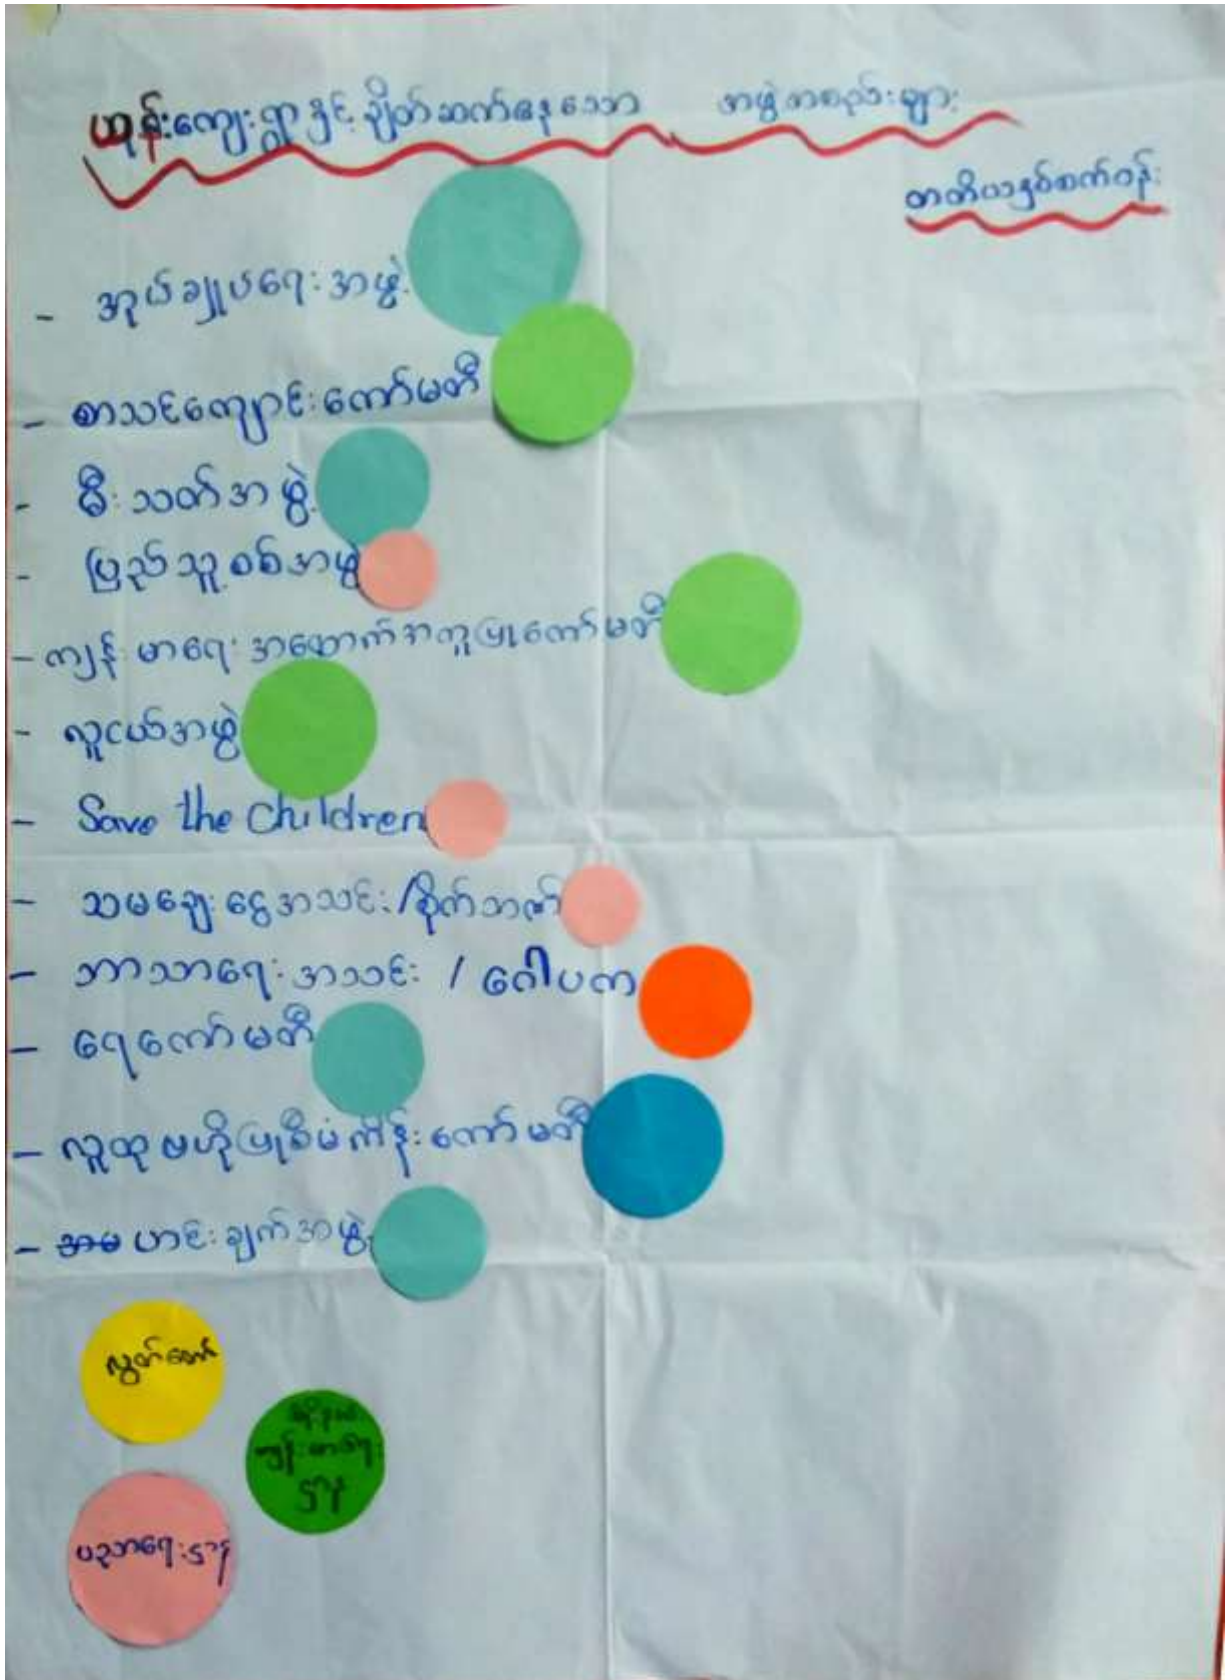 ဟုန်းကျေးရွာနှင့် ချိတ်ဆက်နေသော အဖွဲ့အစည်းများ
တတိယနှစ်စက်ဝန်း
- အုပ်ချုပ်ရေးအဖွဲ့
- စာသင်ကျောင်းကော်မတီ
- မီးသတ်အဖွဲ့
- ပြည်သူ့စစ်အဖွဲ့
- ကျန်းမာရေးအထောက်အကူပြုကော်မတီ
- လူငယ်အဖွဲ့
- Save the Children
- သမချေးငွေအသင်း/စိုက်ဘဏ်
- ဘာသာရေးအသင်း / ဂေါပက
- ရေကော်မတီ
- လူထုဗဟိုပြုစီမံကိန်းကော်မတီ
- ဟင်းချက်အဖွဲ့
လွှတ်တော်
ကျန်းမာရေး
ဌာန
ပညာရေးဌာန